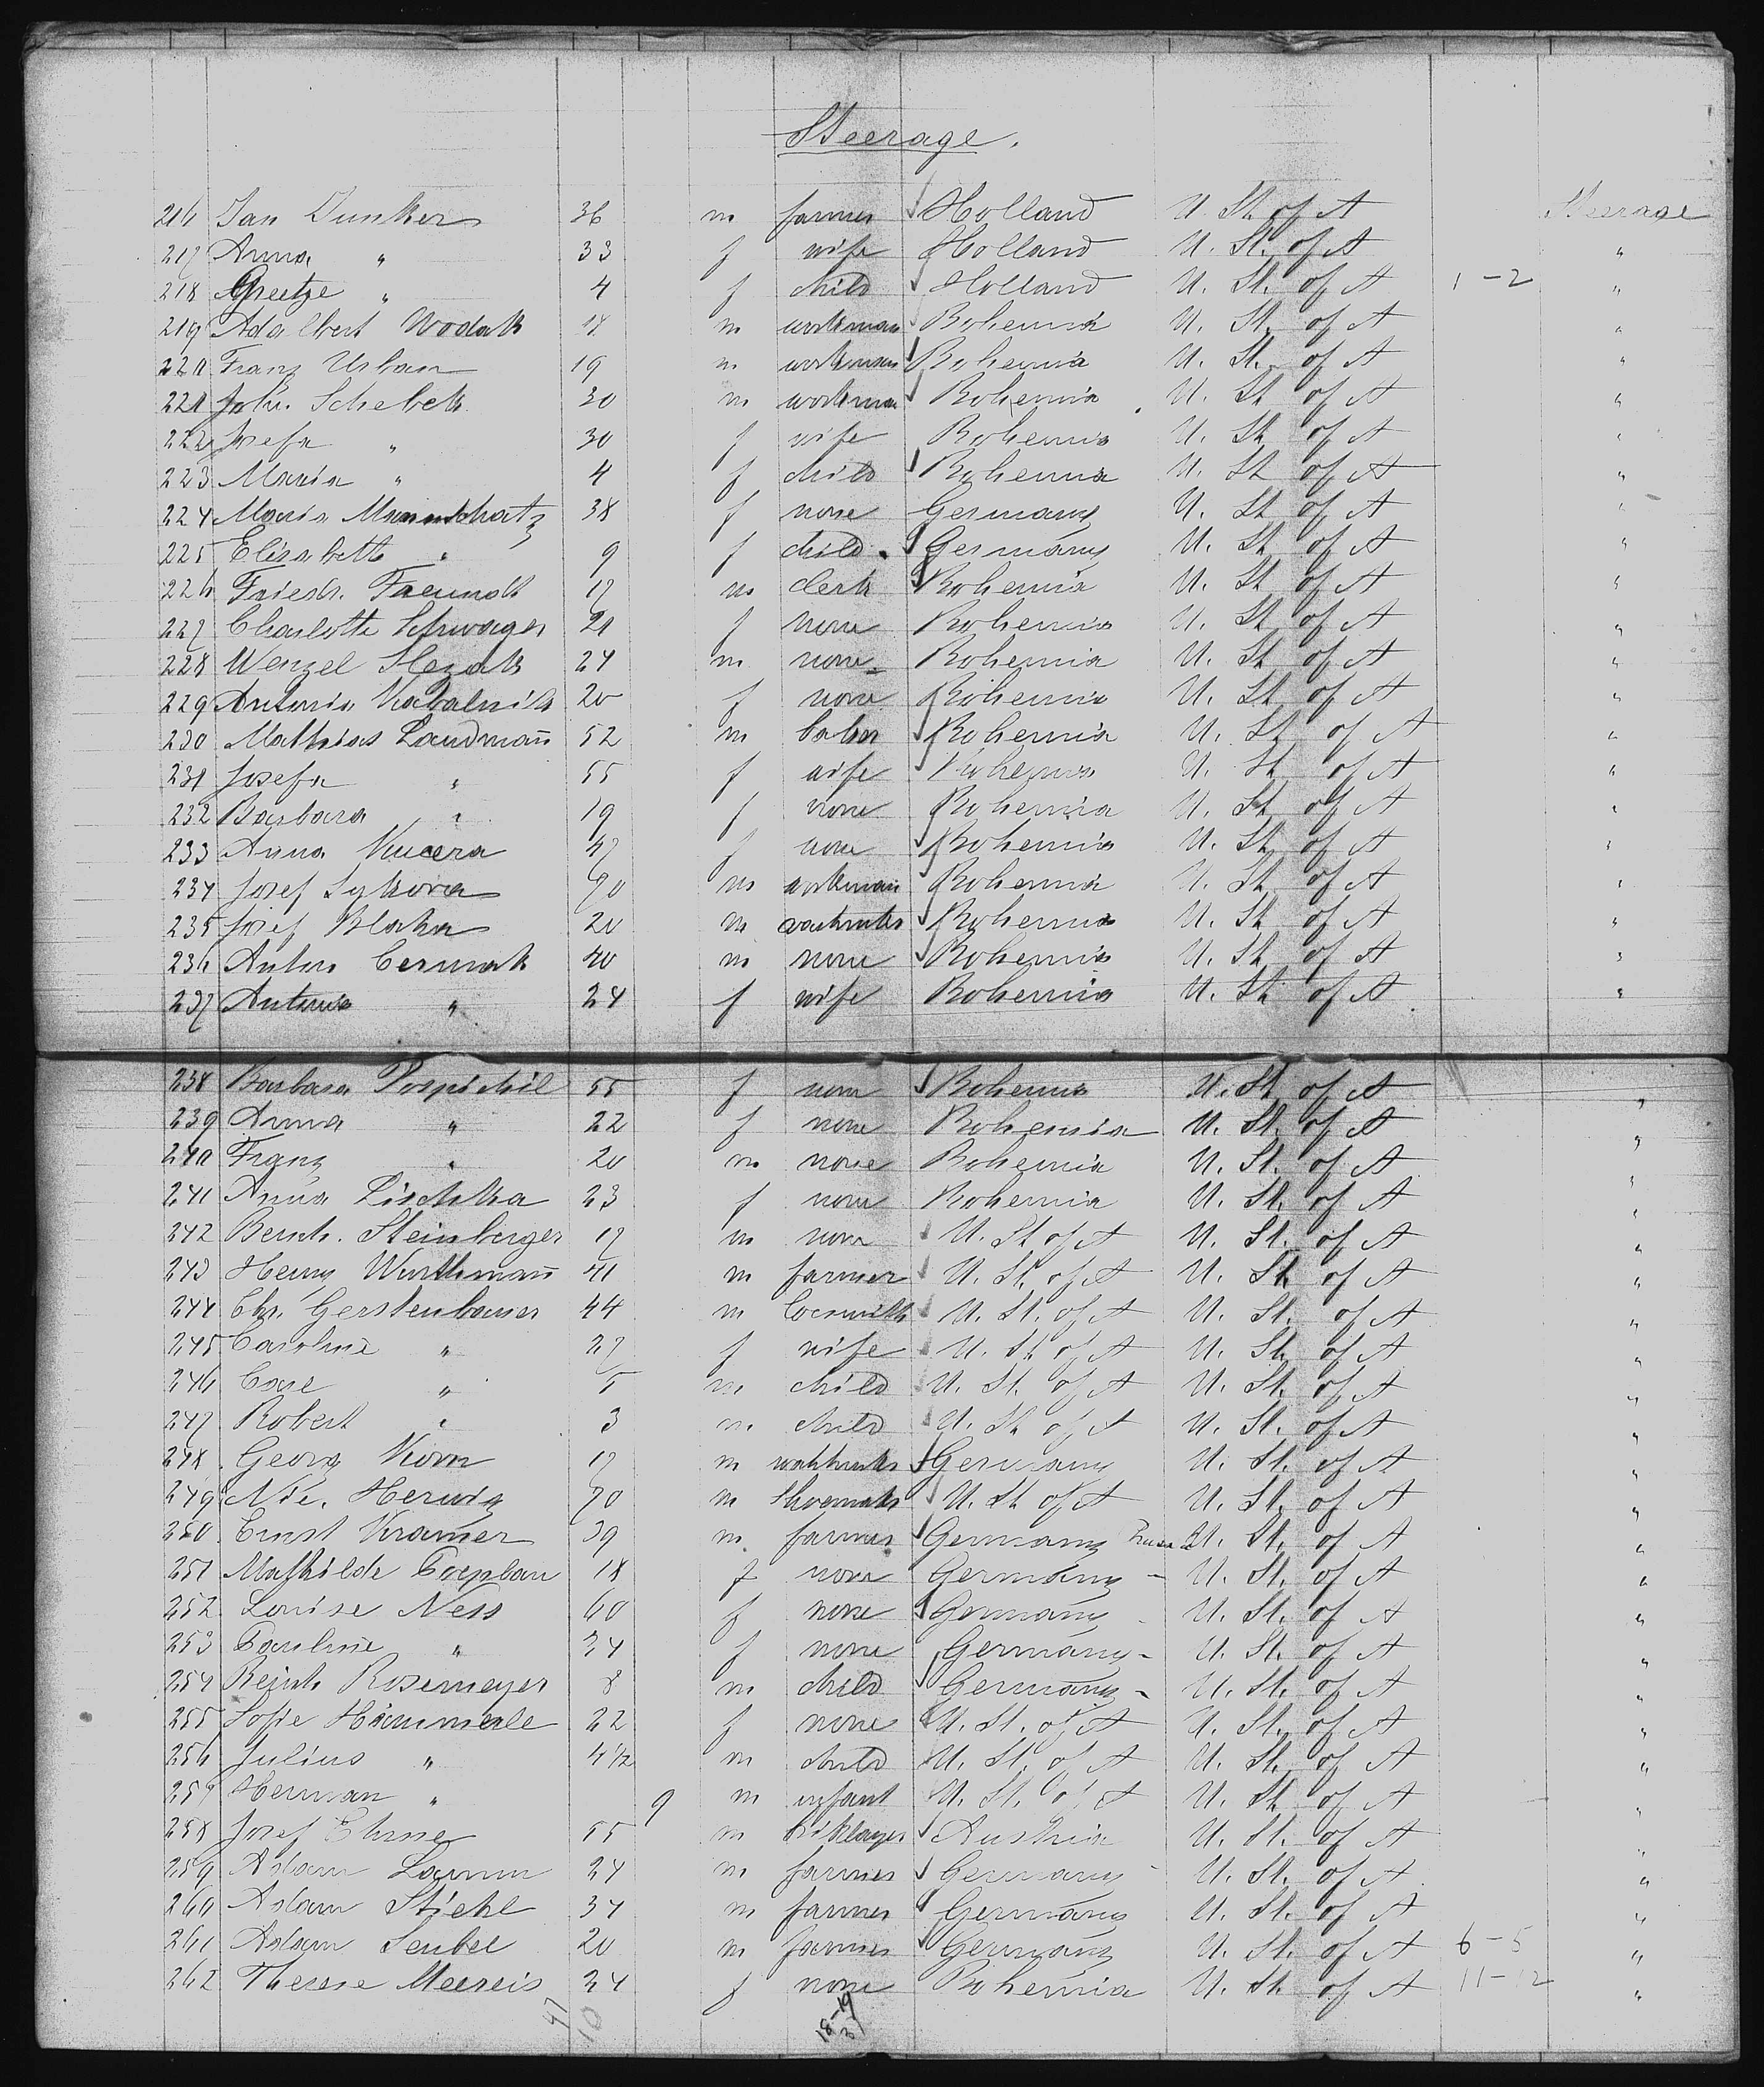 Steerage.
216 Jan Junker 36 m farmer Holland U. St. of A Steerage
217 Anna " 33 f wife Holland U. St. of A "
218 Greetze " 4 f child Holland U. St. of A 1-2 "
219 Adalbert Wodak 18 m workman Bohemia U. St. of A "
220 Franz Urban 19 m workman Bohemia U. St. of A "
221 Joh. Schebek 30 m workman Bohemia U. St. of A "
222 Josefa " 30 f wife Bohemia U. St. of A "
223 Maria " 4 f child Bohemia U. St. of A "
224 Maria 38 f none Germany U. St. of A "
225 Elisabeth " 9 f child Germany U. St. of A "
226 Friedr. Freundt 17 m clerk Bohemia U. St. of A "
227 Charlotte Schwager 21 f none Bohemia U. St. of A "
228 Wenzel Slezak 24 m none Bohemia U. St. of A "
229 Antonia Kabalnik 20 f none Bohemia U. St. of A "
230 Mathias Landmañ 52 m Bohemia U. St. of A "
231 Josefa " 55 f wife Bohemia U. St. of A "
232 Barbara " 19 f none Bohemia U. St. of A "
233 Anna Kucera 47 f none Bohemia U. St. of A "
234 Josef Sykora m workman Bohemia U. St. of A "
235 Josef Blaha 20 m Bohemia U. St. of A "
236 Anton Cermak 40 m none Bohemia U. St. of A "
237 Antonia " 24 f wife Bohemia U. St. of A "
238 Barbara Pospichil 55 f none Bohemia U. St. of A "
239 Anna " 22 f none Bohemia U. St. of A "
240 Franz " 20 m none Bohemia U. St. of A "
241 Anna Lischka 23 f none Bohemia U. St. of A "
242 Bernh. Steinberger 17 m none U. St. of A U. St. of A "
243 Henry Wurthmañ 41 m farmer U. St. of A U. St. of A "
244 Chr. Gerstenhauer 44 m U. St. of A U. St. of A "
245 Caroline " 27 f wife U. St. of A U. St. of A "
246 Carl " 5 m child U. St. of A U. St. of A "
247 Robert " 3 m child U. St. of A U. St. of A "
248 Georg Korn 17 m Germany U. St. of A "
249 Nic. Herwig m U. St. of A U. St. of A "
250 Ernst Kramer 39 m farmer Germany U. St. of A "
251 Mathilde 18 f none Germany - U. St. of A "
252 Louise Ness 60 f none Germany U. St. of A "
253 Pauline " 24 f none Germany - U. St. of A "
254 Reinh. Rosemeyer 8 m child Germany - U. St. of A "
255 Sofie Hämmerle 22 f none U. St. of A U. St. of A "
256 Julius " 4 1/2 m child U. St. of A U. St. of A "
257 Herman " 9 m infant U. St. of A U. St. of A "
258 Josef 55 m briklayer Austria U. St. of A "
259 Adam Lamm 24 m farmer Germany U. St. of A "
260 Adam Stiehl 34 m farmer Germany U. St. of A "
261 Adam Seubel 20 m farmer Germany U. St. of A 6-5 "
262 Therese Meereis 24 f none Bohemia U. St. of A 11-12 "
47
10
18-19